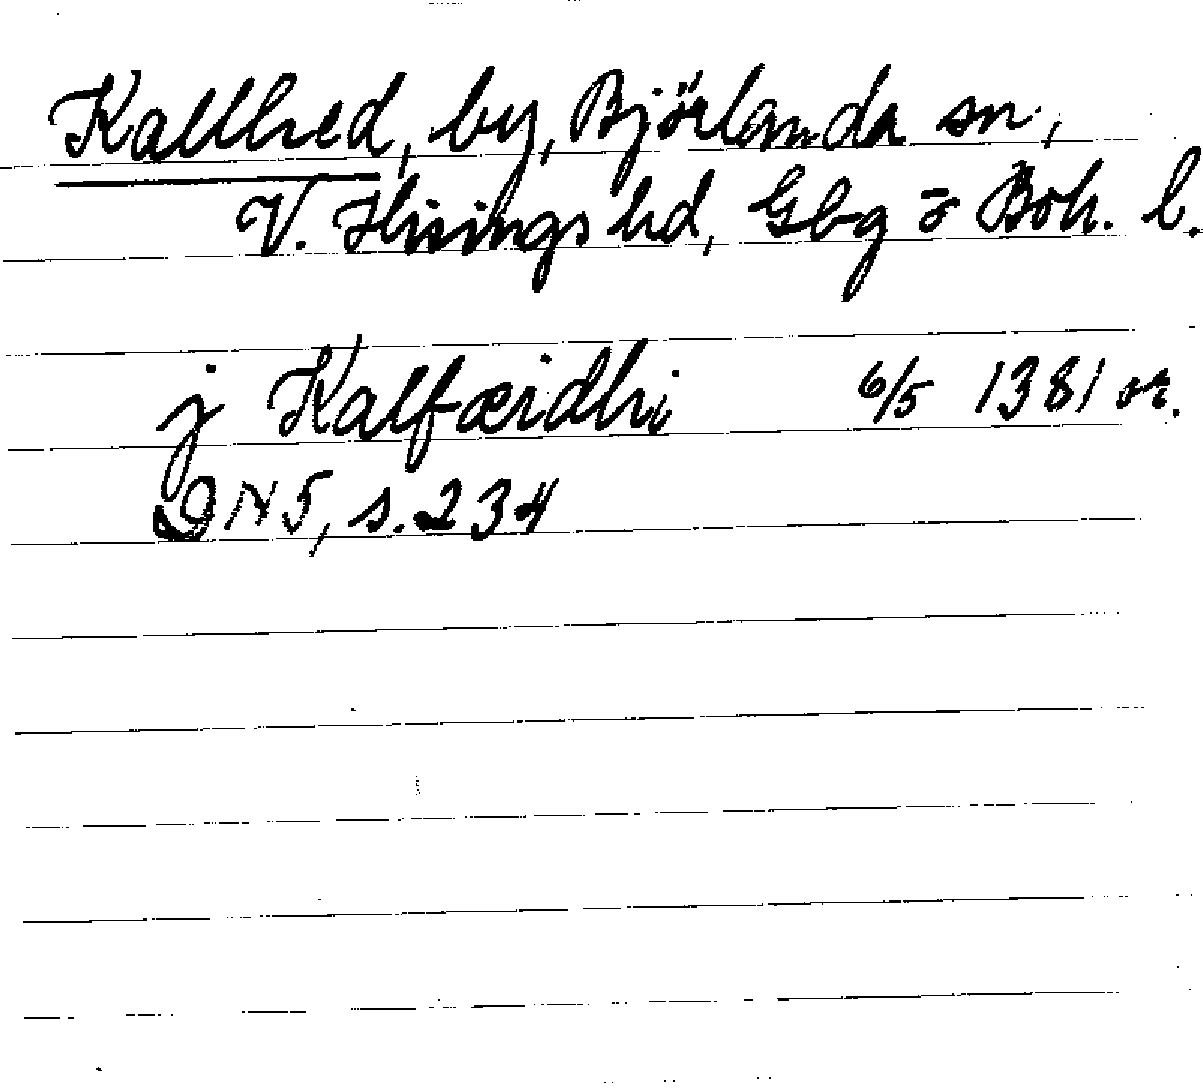 Kallhed, by, Björlanda sn,
V. Hisings hd, Gbg o Boh. l.
j Kalfærdhi 6/5 1381 or.
DN 5, s. 234